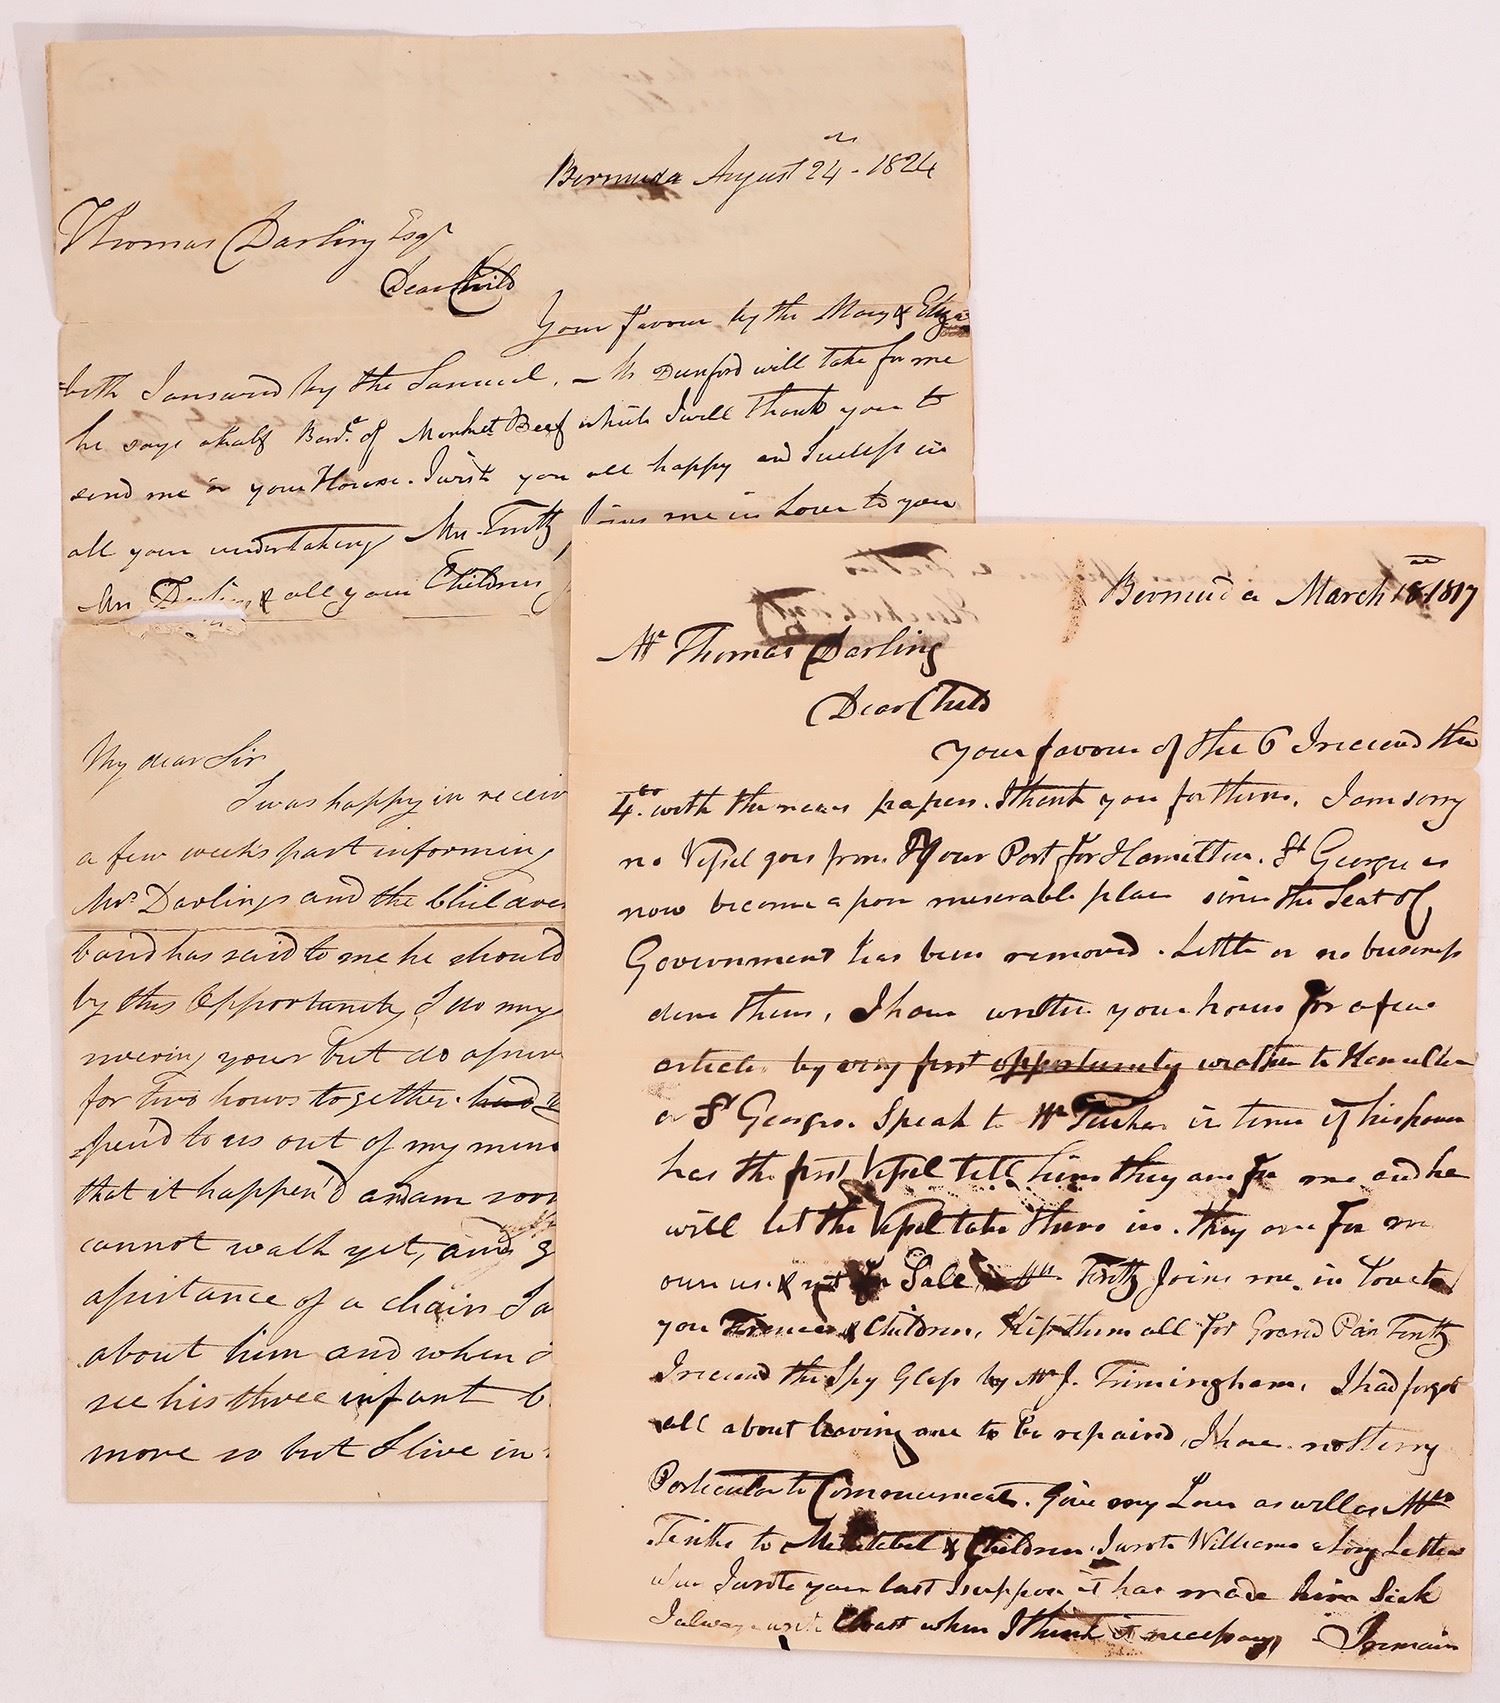 Bermuda August 24 - 1824
Thomas Darling Esqr
Dear Child
Your favour by the Mary & Eliza
=beth I answard by the Samuel. - Mr Dunford will take for me
he says a half Barl. of Market Beef which I will thank you to
send me or your House. I wish you all happy and Success in
all your undertakings Mrs. Tentz Joins me in Love to you
Mrs Darling & all your Children
My dear Sir
I was happy in receiv
a few weeks past informing
Mrs Darlings and the Children
band has said to me he should
by this Opportunity, I do my
swering your but do assure
for Two hours together
pen'd to us out of my min
that it happen'd and am
cannot walk yet, and
assistance of a chair I a
about him and when
see his three infant b
more so but I live in
Bermuda March 18. 1817
Mr Thomas Darling
Dear Child
your favour of the 6 I receiud the
4th. with the news papers. I thank you for them. I am sorry
no Vessel goes from your Port for Hamilton. St Georges is
now become a poor meserable place since the Seat of
Government has been removed. Little or no business
done there, I have written your house for a few
articles by very first opportunity wether to Hamilton
or St Georges. Speak to Mr Tucker in time if his
has the first Vessel tell him they are for me and he
will let the Vessel take them in. they are for my
own use & not for Sale Mrs. Tentz Joins me in Love to
you & Children, Kiss them all for Grand Par Tentz
I receiud the Spy Glass by Mr J. Trimingham. I had forgot
all about leaving one to be repaired, I have nothing
Particular to Communicate. Give my Love as well as Mrs
to & Children I wrote Williams a long Letter
when I wrote your last I suppose it has made him Sick
I always write when I think it necessary I remain